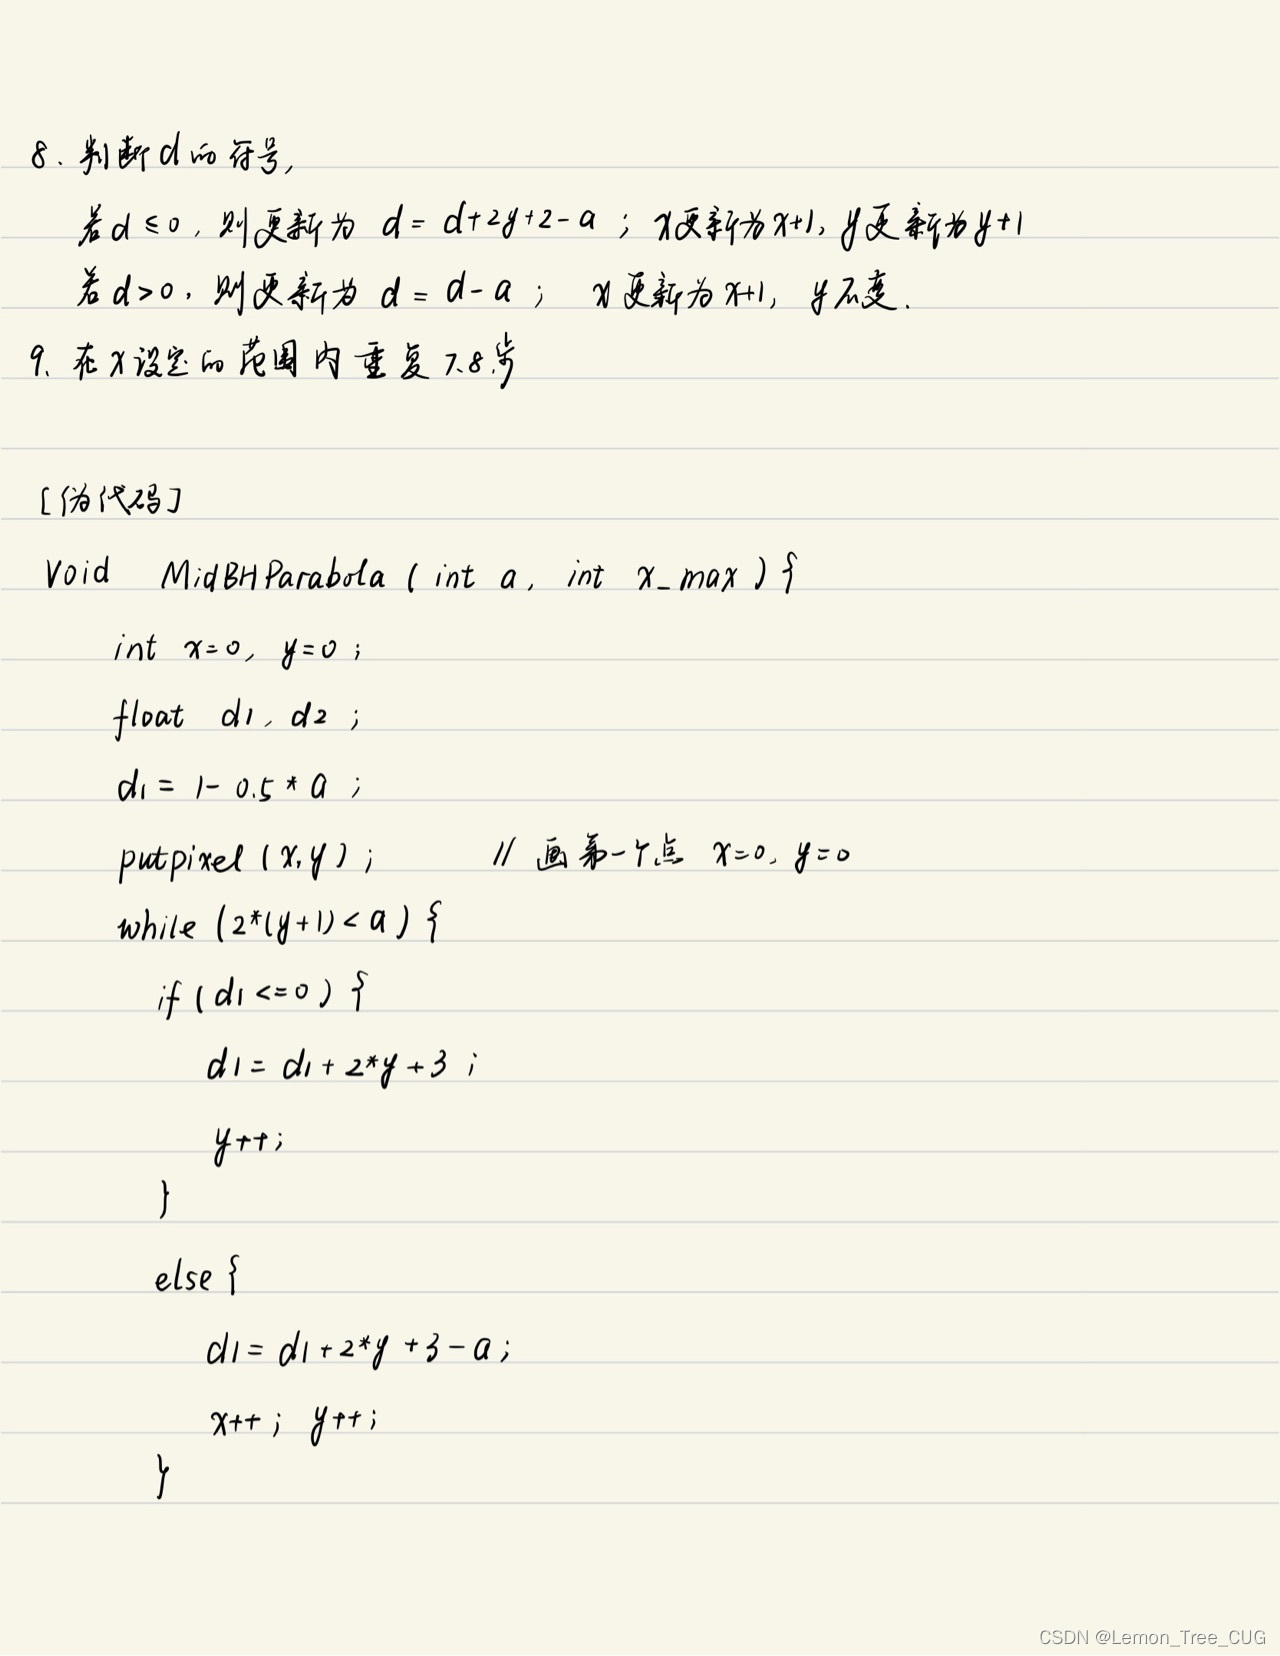 8. 判断d的符号,
若d≤0, 则更新为 d=d+2y+2-a ; x更新为x+1, y更新为y+1
若d>0, 则更新为 d=d-a ; x更新为x+1, y不变.
9. 在x设定的范围内重复7.8.步
[伪代码]
Void MidBHParabola (int a, int x_max) {
int x=0, y=0 ;
float d1, d2 ;
d1=1-0.5*a ;
putpixel (x,y) ; // 画第一个点 x=0, y=0
while (2*(y+1)<a) {
if (d1<=0) {
d1=d1+2*y+3 ;
y++;
}
else {
d1=d1+2*y+3-a;
x++ ; y++;
}
CSDN @Lemon_Tree_CUG